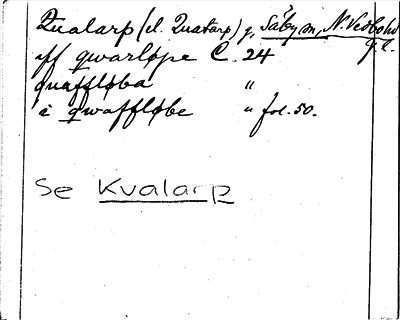 Qualarp (el. Quatarp) g, Säby sn, N. Vedbohd
g. r.
aff qwarløpe C. 24
quaffløba "
i qwaffløbe " fol. 50.
Se Kvalarp